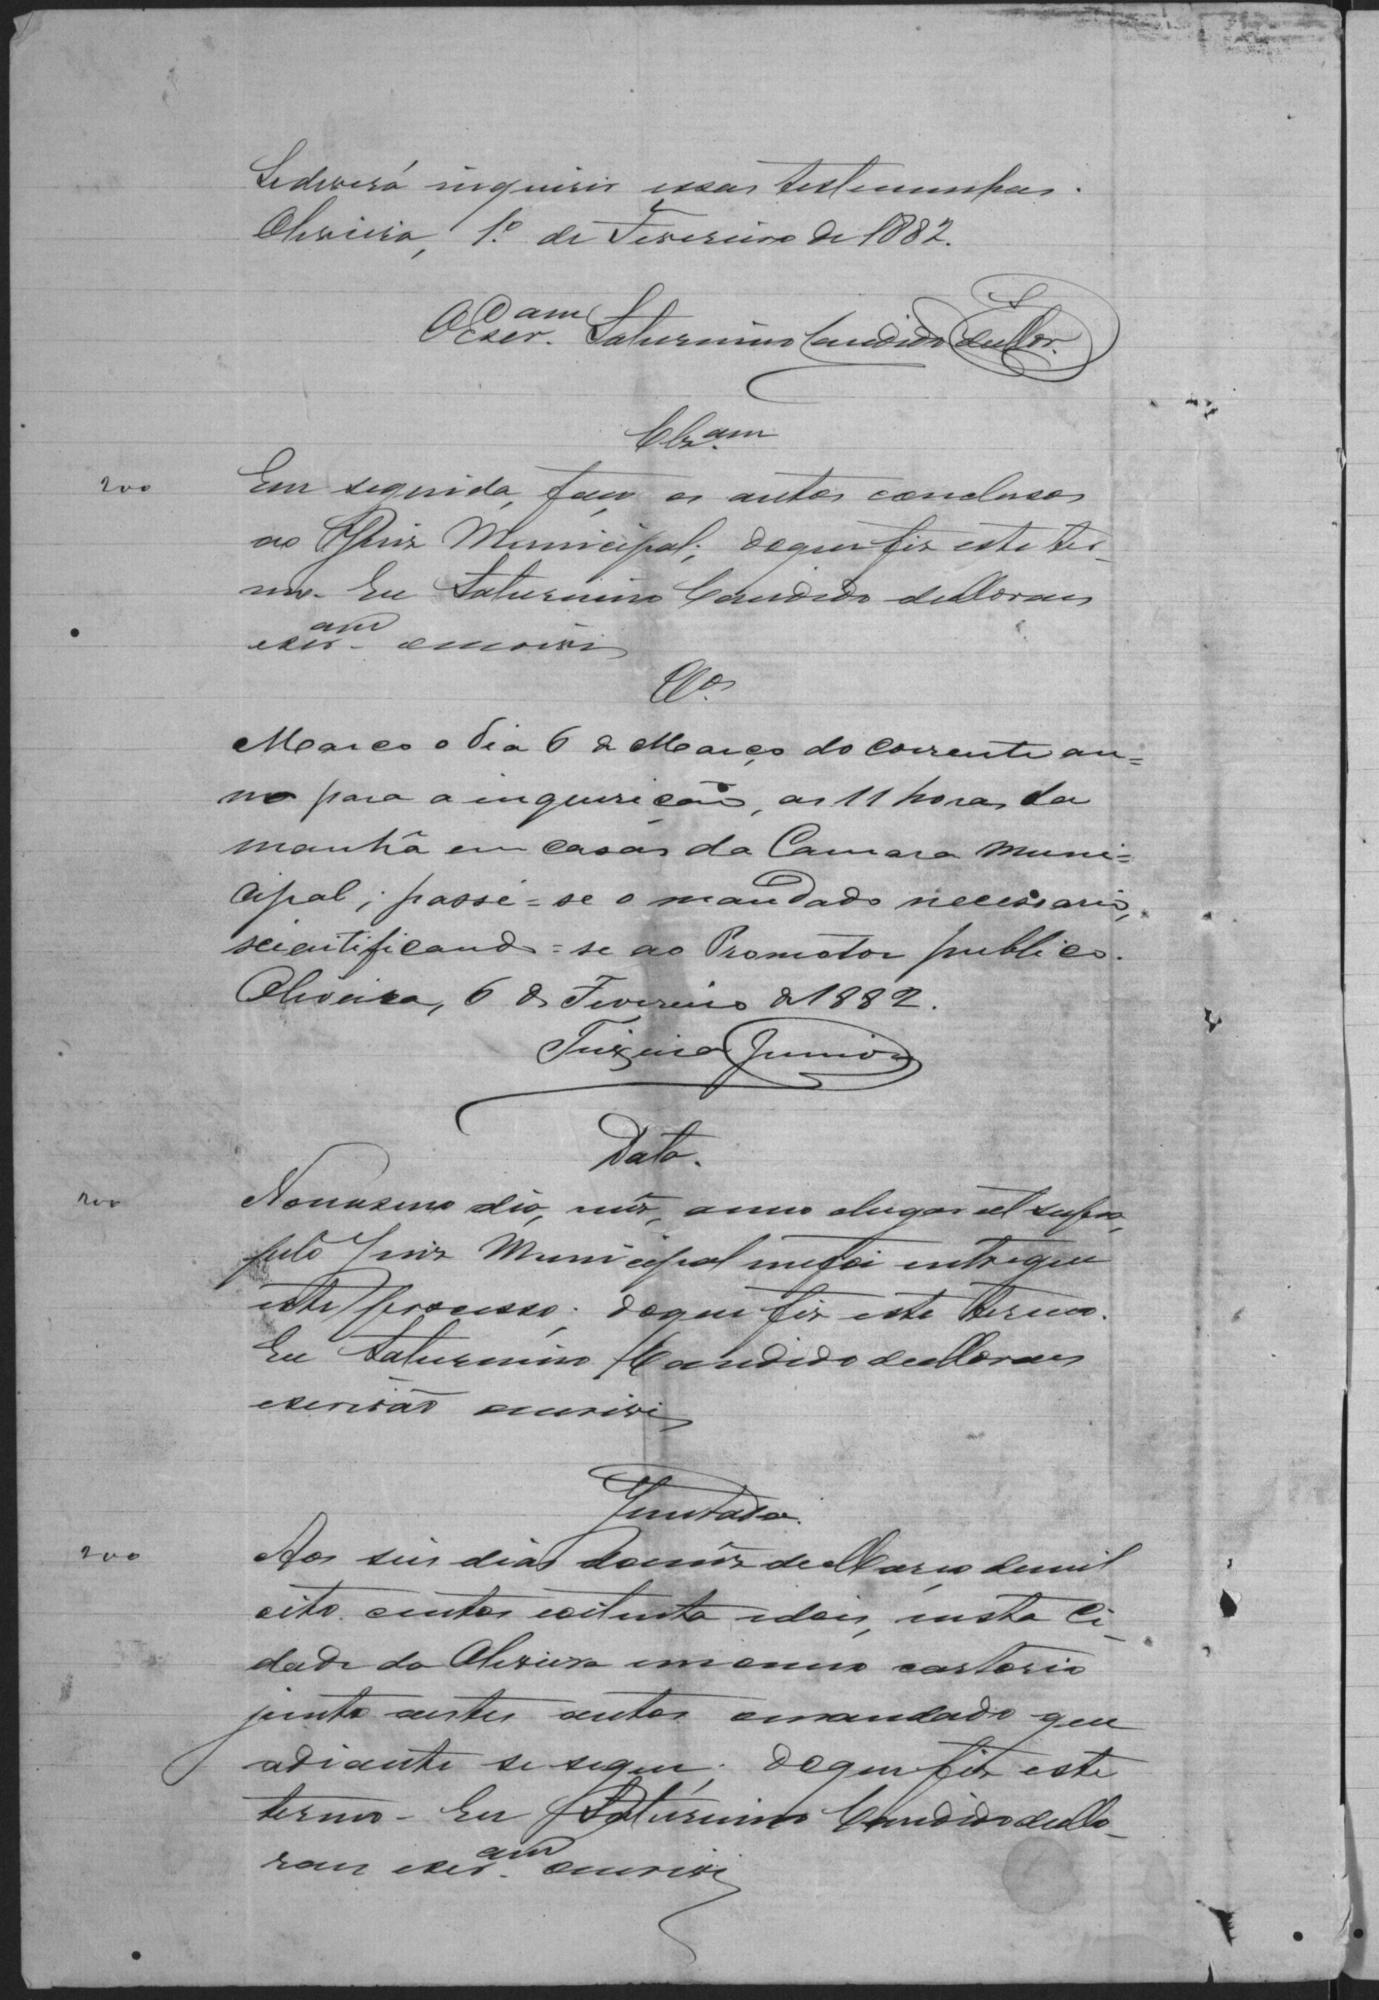 Se deverá inquirir essas testemunhas.
Oliveira, 1.º de Fevereiro de 1882.
O Escr.am Saturnino Candido de Mor.
Clz.am
200
Em seguida, faço os autos conclusos
ao Juiz Municipal; do que fiz este ter-
mo. Eu Saturnino Candido de Moraes
escr.am o escrivi
Cl.os
Marco o dia 6 de Março do corrente an=
no para a inquirição, as 11 horas da
manhã em casas da Camara Muni=
cipal; passe=se o mandado necessario,
scientificando=se ao Promotor publico.
Oliveira, 6 de Fevereiro de 1882.
Teixeira Junior
Data.
200
No mesmo dia, mês, anno e lugar ut supra,
pelo Juiz Municipal me foi entregue
este processo; do que fiz este termo.
Eu Saturnino Candido de Moraes
escrivão o escrivi
Juntada.
200
Aos seis dias do mês de Março de mil
oito centos e oitenta e dois, nesta Ci-
dade da Oliveira em o meu cartorio
junto a estes autos o mandado que
adiante se segue; do que fiz este
termo. Eu Saturnino Candido de Mo-
raes escr.am o escrivi